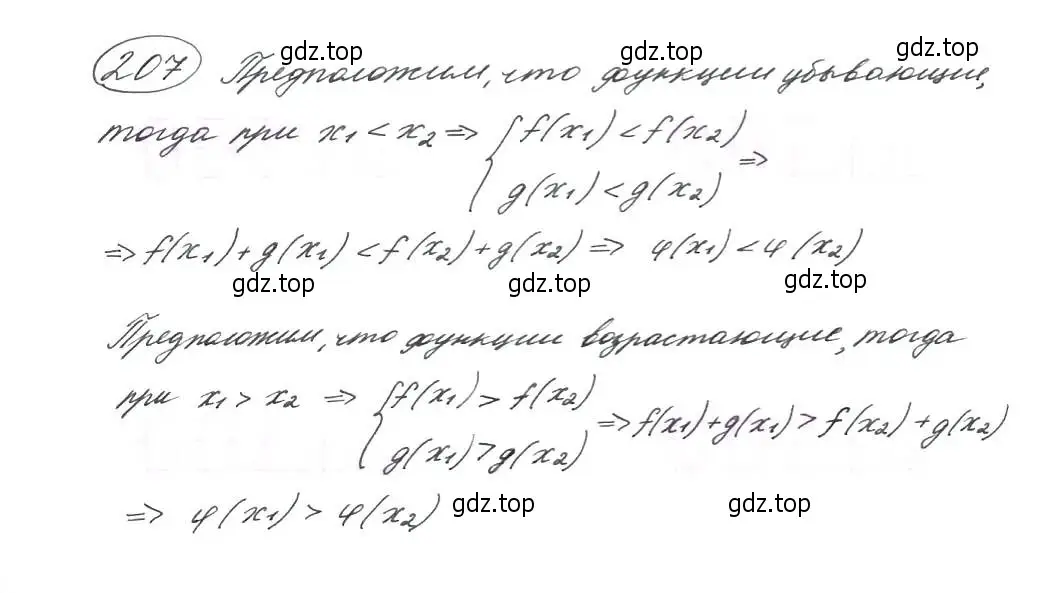 gdz.top gdz.top gdz.top
207 Предположим, что функции убывающие,
тогда при x₁ < x₂ ⇒ { f(x₁) < f(x₂)
g(x₁) < g(x₂) ⇒
⇒ f(x₁) + g(x₁) < f(x₂) + g(x₂) ⇒ φ(x₁) < φ(x₂)
gdz.top gdz.top gdz.top
Предположим, что функции возрастающие, тогда
при x₁ > x₂ ⇒ { f(x₁) > f(x₂)
g(x₁) > g(x₂) ⇒ f(x₁) + g(x₁) > f(x₂) + g(x₂)
⇒ φ(x₁) > φ(x₂) gdz.top gdz.top